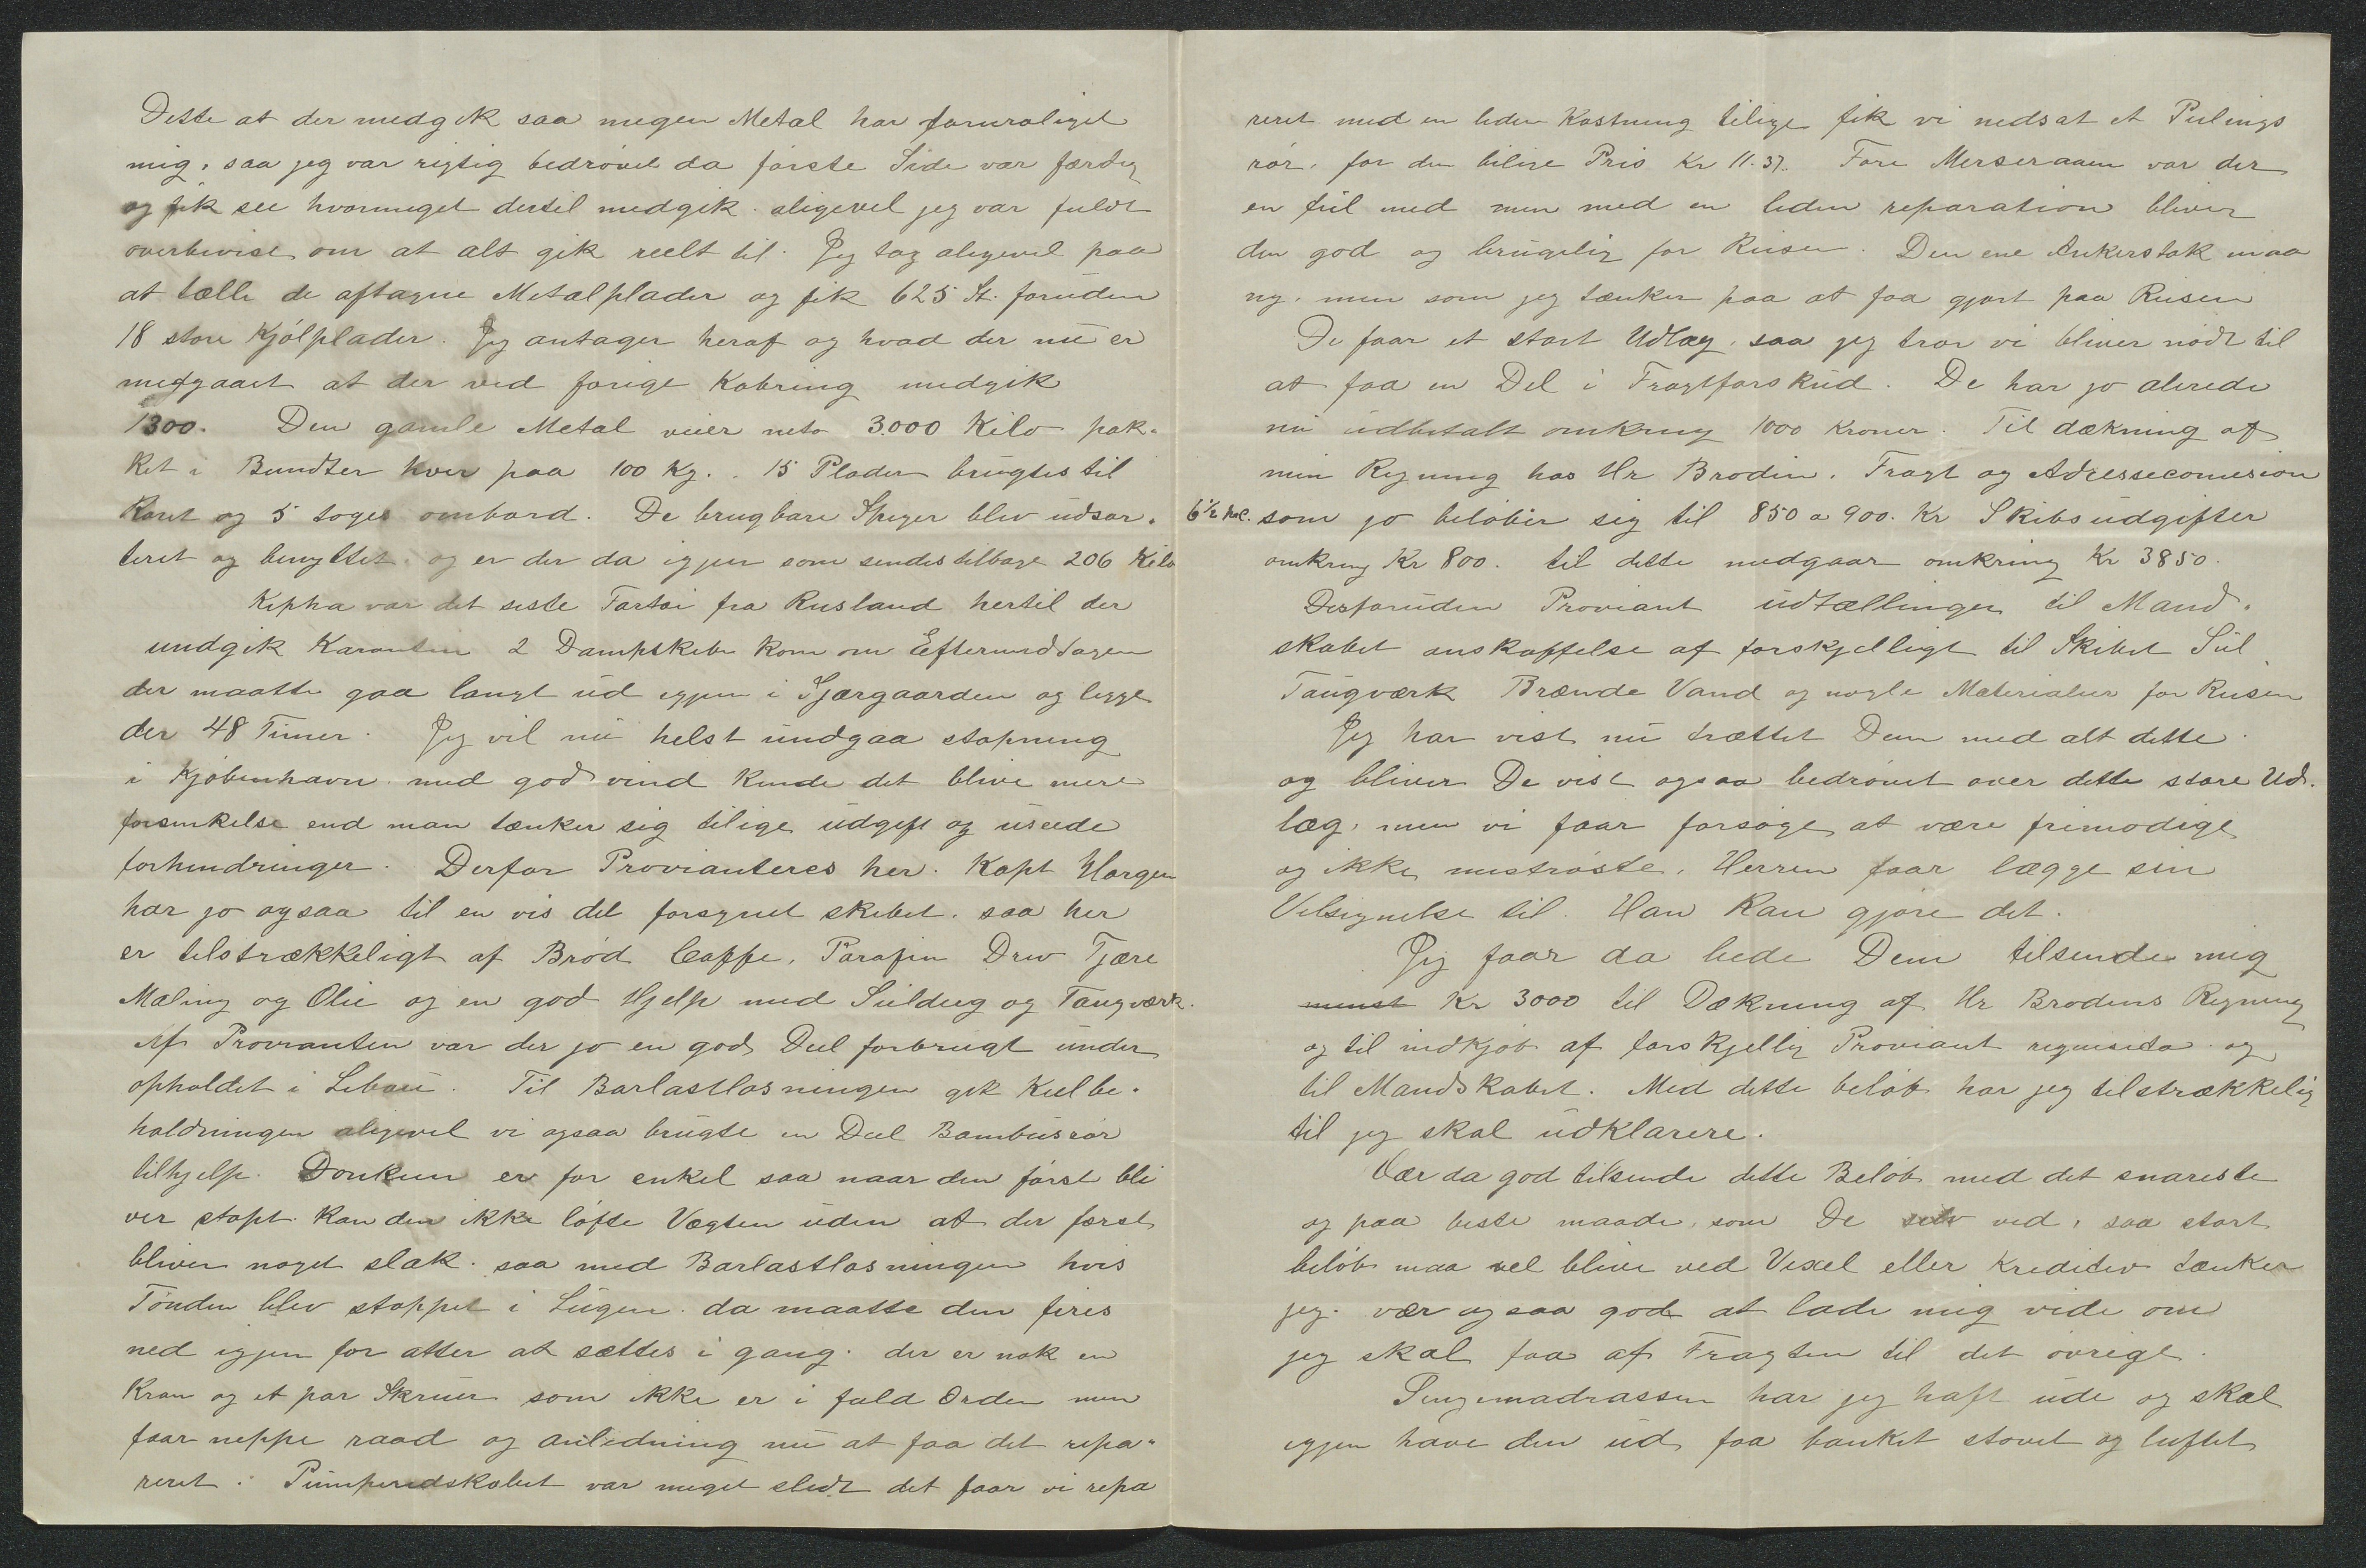 Dette at der medgik saa megen Metal har foruroliget
mig, saa jeg var rigtig bedrövet da förste Side var færdig
og fik see hvormeget dertil medgik. aligevel jeg var fuldt
overbevist om at alt gik reelt til. Jeg tog aligevel paa
at tælle de aftagne Metalplader og fik 625 St. foruden
18 store Kjölplader. Jeg antager heraf og hvad der nu er
medgaaet at der ved forige Kobring medgik
1300. Den gamle Metal veier neto 3.000 Kilo pak-
ket i Bundter hver paa 100 Kg. 15 Plader brugtes til
Roret og 5 toges ombord. De brugbare Spiger blev udsor-
teret og benyttet. og er der da igjen som sendes tilbage 206 Kilo
Kepha var det siste Fartöi fra Rusland hertil der
undgik Karantin 2 Dampskibe kom om Eftermiddagen
der maatte gaa langt ud igjen i Skjærgaarden og ligge
der 48 Timer. Jeg vil nu helst undgaa stopning
i Kjöbenhavn. med god vind kunde det blive mere
forsinkelse end man tænker sig tilige udgift og useede
forhindringer. Derfor Provianteres her. Kapt Horgen
har jo ogsaa til en vis del forsynet skibet. saa her
er tilstrækkeligt af Bröd Caffe, Parafin Drev Tjære
Maling og Olie og en god Hjelp med Seildug og Taugværk.
Af Provianten var der jo en god Deel forbrugt under
opholdet i Libau. Til Barlastlosningen gik Kulbe-
holdningen aligevel vi ogsaa brugte en Deel Bambusrör
tilhjelp. Donkien er for enkel saa naar den först bli
ver stopt. kan den ikke löfte Vægten uden at der först
bliver noget slak. saa med Barlastlosningen hvis
Tönden blev stoppet i Lugen. da maatte den fires
ned igjen for atter at sættes i gang. der er nok en
Kran og et par Skruer som ikke er i fuld Orden men
faar neppe raad og anledning nu at faa det repa-
reret. Pumperedskabet var meget slidt det faar vi repa
reret med en liden Kostning tilige fik vi nedsat et Peilings
rör. for den bilige Pris Kr 11.37. Fore Merseraaen var der
en feil med men med en liden reparation bliver
den god og brugelig for Reisen. Den ene Ankerstok maa
ny. men som jeg tænker paa at faa gjort paa Reisen
De faar et stort Udlæg, saa jeg tror vi bliver nödt til
at faa en Del i Fragtforskud. De har jo alerede
nu udbetalt omkring 1000 Kroner. Til dækning af
min Regning hos Hr Brodin. Fragt og Adressecomision
6½ som jo belöber sig til 850 a 900. Kr Skibsudgifter
omkring Kr 800. til dette medgaar omkring Kr 3850.
Desforuden Proviant udtællinger til Mand-
skabet anskaffelse af forskjelligt til Skibet Seil
Taugværk Brænde Vand og nogle Materialier for Reisen
Jeg har vist nu trættet Dem med alt dette.
og bliver De vist ogsaa bedrövet over dette store Ud-
læg, men vi faar forsöge at være frimodige
og ikke miströste. Herren faar lægge sin
Velsignelse til. Han kan gjöre det.
Jeg faar da bede Dem tilsende mig
minst Kr 3000 til Dækning af Hr Brodins Regning
og til indkjöb af forskjellig Proviant og
til Mandskabet. Med dette belöb har jeg tilstrækkelig
til jeg skal udklarere.
Vær da god tilsende dette Belöb med det snareste
og paa beste maade, som De selv ved, saa stort
belöb maa vel blive ved Vexel eller Kreditiv tænker
jeg. vær ogsaa god at lade mig vide om
jeg skal faa af Fragten til det övrige.
Sengemadrassen har jeg haft ude og skal
igjen have den ud, faa banket stövet og luftet